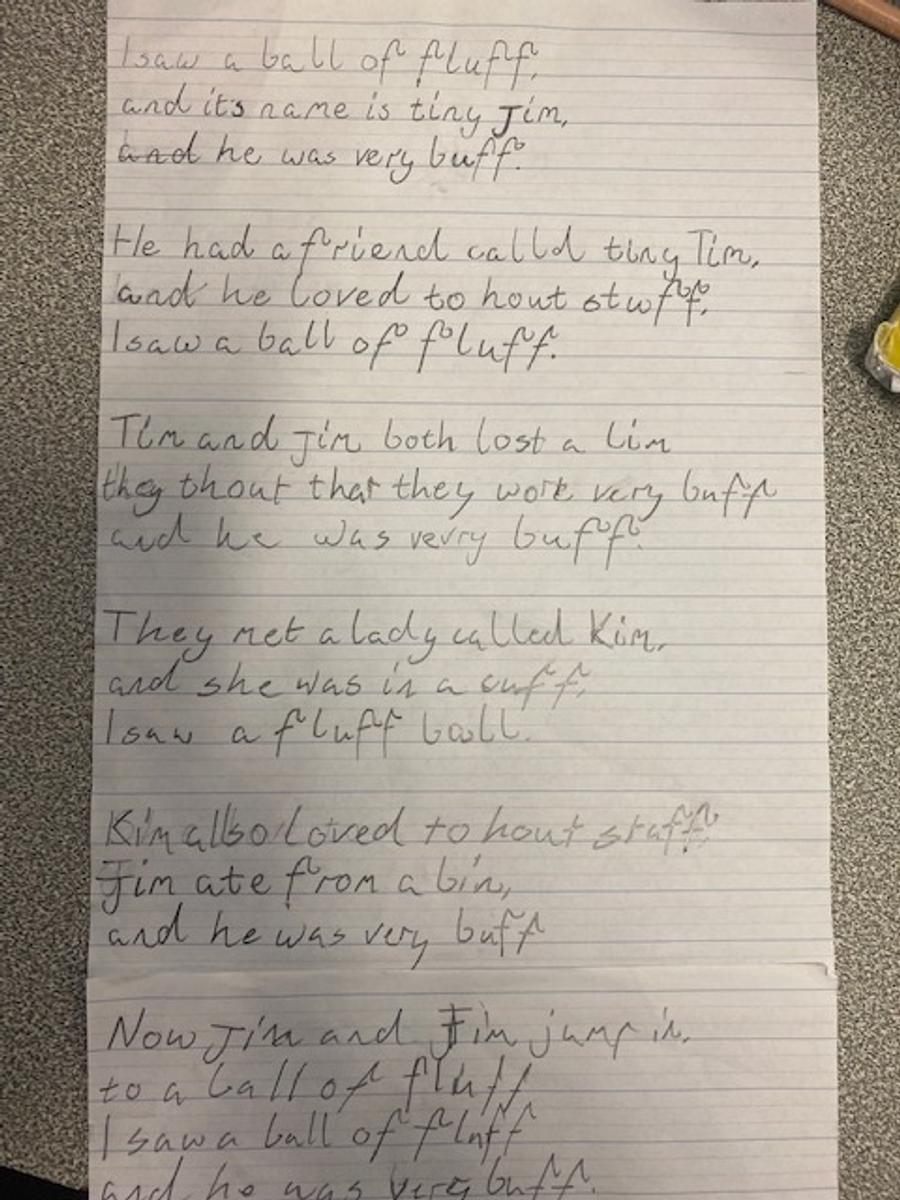 I saw a ball of fluff,
and it's name is tiny Jim,
and he was very buff.
He had a friend calld tiny Tim,
and he loved to hout stuff,
I saw a ball of fluff.
Tim and Jim both lost a lim
they thout that they work very buff
and he was vevry buff.
They met a lady called Kim,
and she was in a cuff,
I saw a fluff ball.
Kim allso loved to hout stuff,
Jim ate from a bin,
and he was very buff
Now Jim and Tim jump in,
to a ball of fluff
I saw a ball of fluff
and he was very buff.